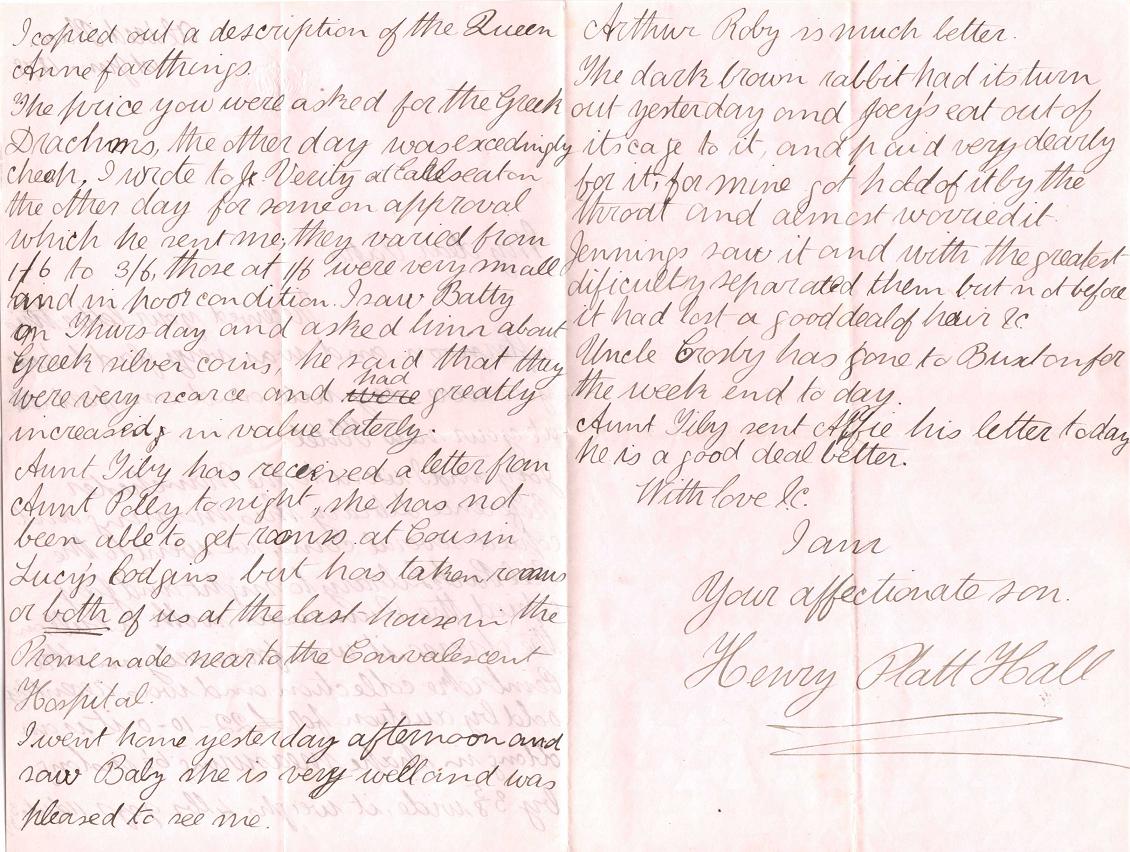 I copied out a description of the Queen
Anne farthings.
The price you were asked for the Greek
Drachms, the other day was excedingly
cheap. I wrote to Jr. Verity at
the other day for some on approval
which he sent me, they varied from
1/6 to 3/6, those at 1/6 were very small
and in poor condition. I saw Batty
on Thursday and asked him about
Greek silver coins, he said that they
were very scarce and were had greatly
increased, in value laterly.
Aunt Tiby has received a letter from
Aunt Polly to night, she has not
been able to get rooms at Cousin
Lucy's Lodgins but has taken rooms
or both of us at the last house in the
Promenade near to the Convalescent
Hospital.
I went home yesterday afternoon and
saw Baby she is very well and was
pleased to see me.
Arthur Roby is much better.
The dark brown rabbit had its turn
out yesterday and Joeys eat out of
its cage to it, and paid very dearly
for it, for mine got hold of it by the
throat and almost worried it.
Jennings saw it and with the greatest
dificulty separated them but not before
it had lost a good deal of hair &c
Uncle Crosby has gone to Buxton for
the week end to day.
Aunt Tiby sent Alfie his letter to day
he is a good deal better.
With love &c.
I am
Your affectionate son.
Henry Platt Hall